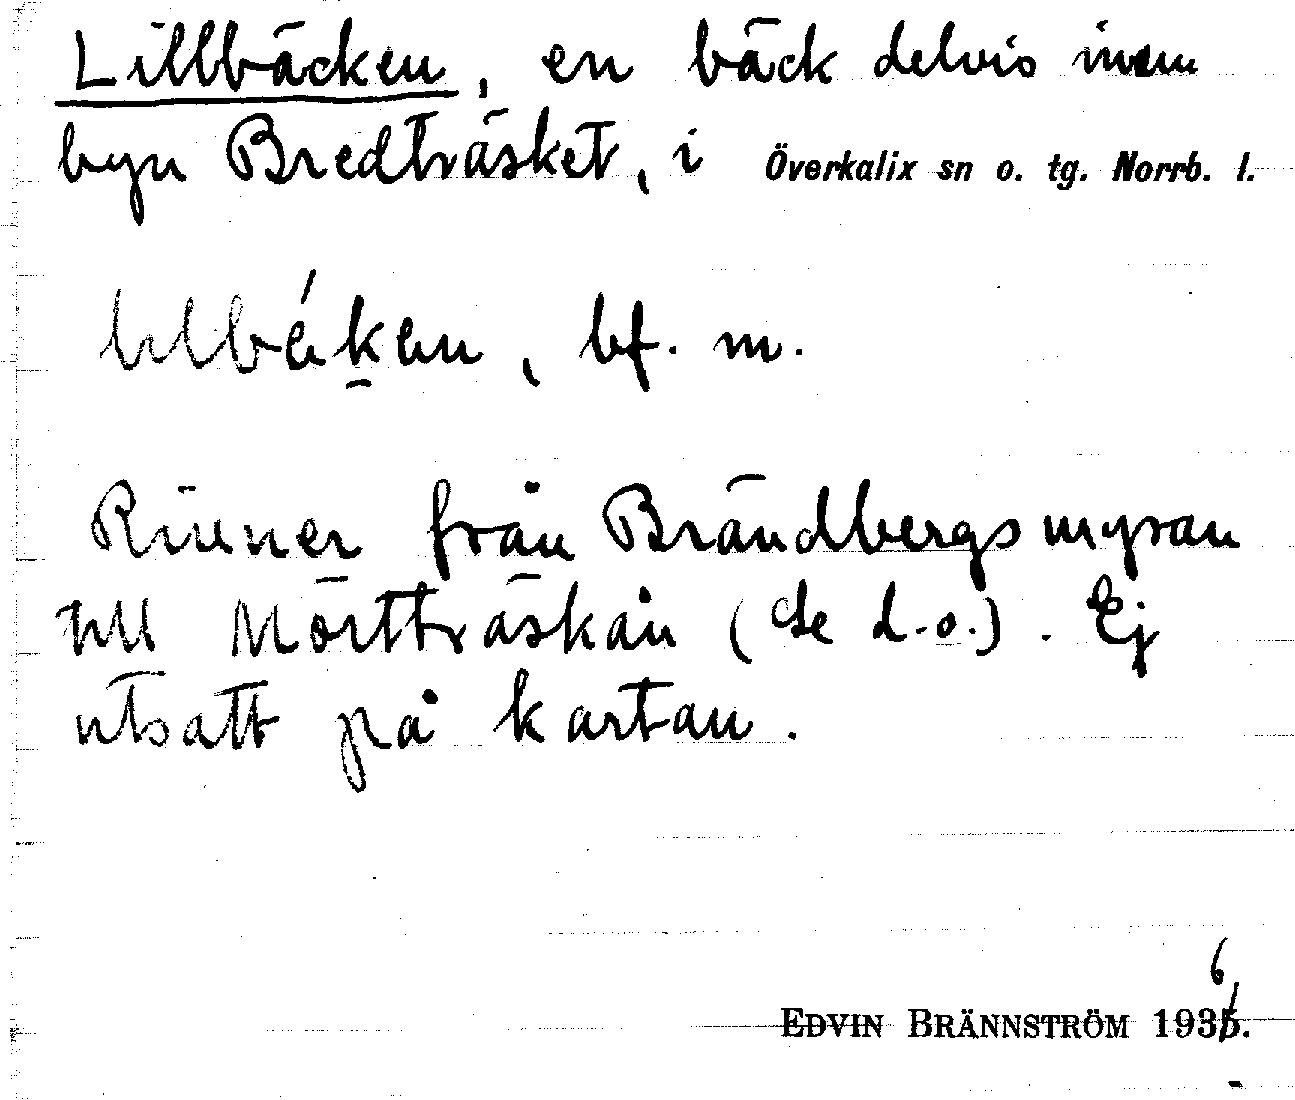 Lillbäcken, en bäck delvis inom
byn Bredträsket, i Överkalix sn o. tg. Norrb. l.
lılbɛ́ḵen, bf. m.
Rinner från Brändbergsmyran
till Mörtträskån (se d.o.). Ej
utsatt på kartan.
6
EDVIN BRÄNNSTRÖM 1935.